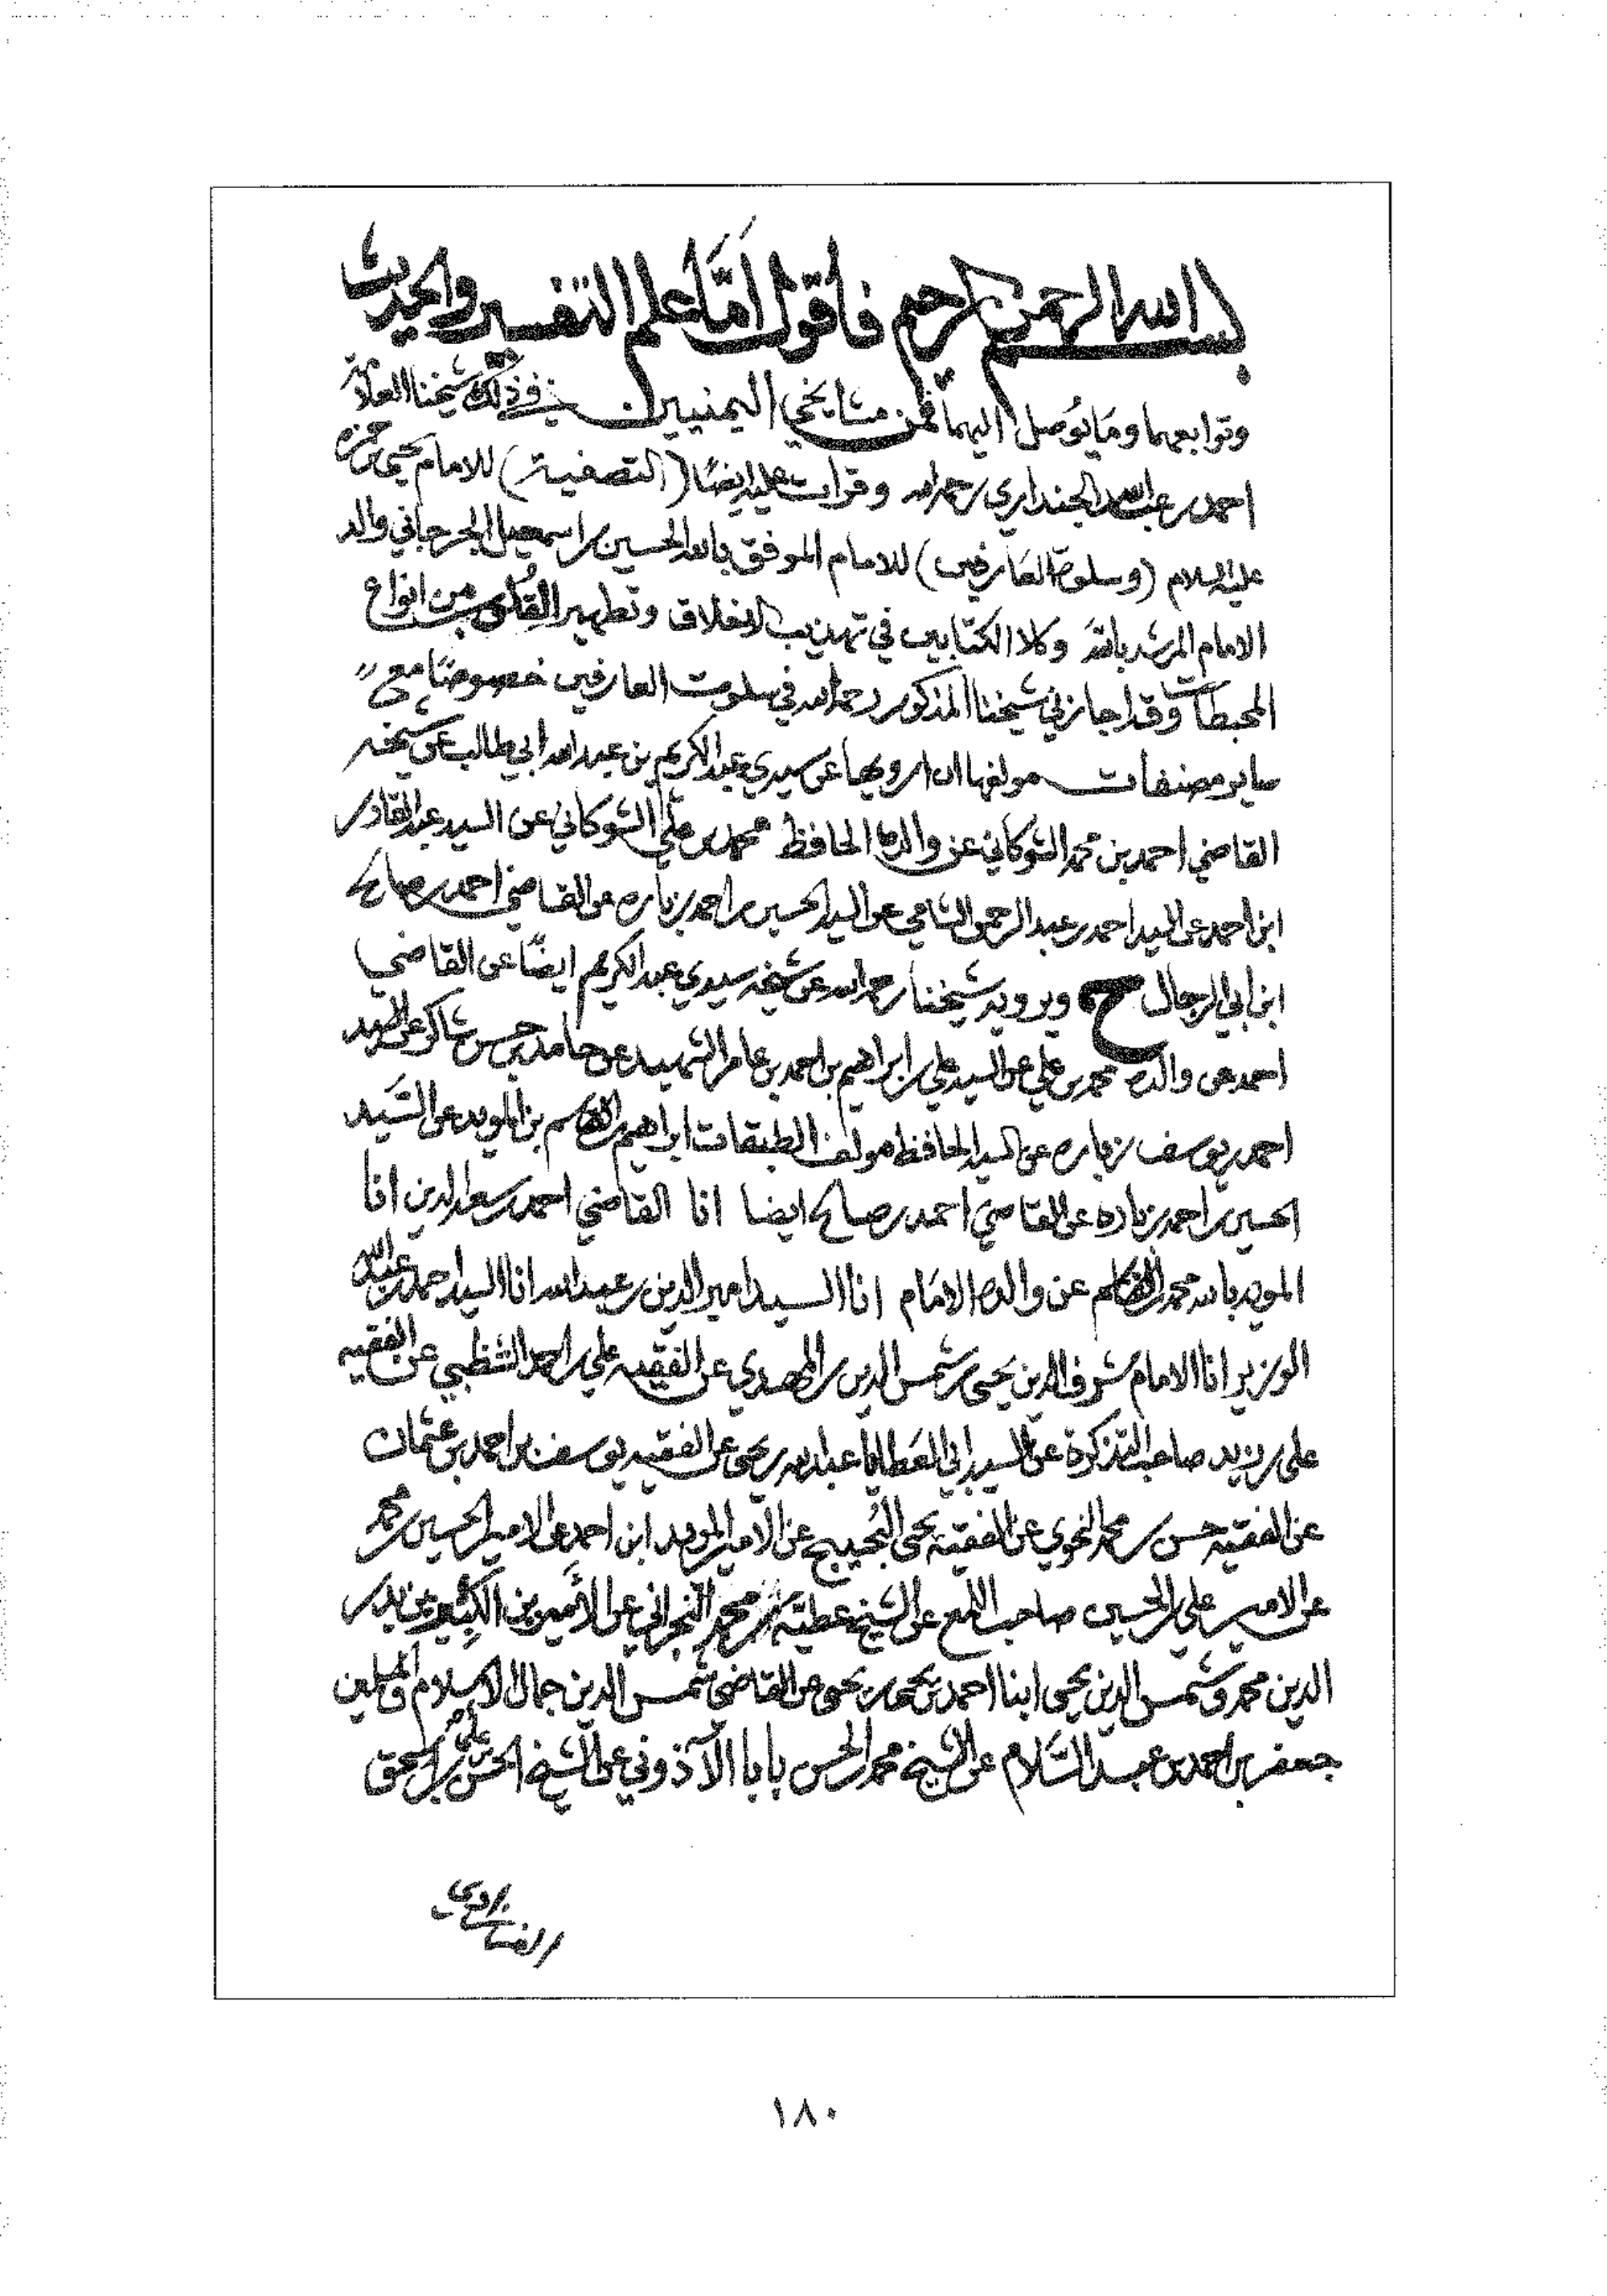 بسم الله الرحمن الرحيم فاقول امَّا علم التفسير والحديث
وتوابعهما وما يُوصل اليهما فمن مشايخي اليمنيين في ذلك شيخنا العلامة
احمد بن عبدالله الجنداري رحمه الله وقرات عليه ايضًا (التصفية) للامام يحيى بن حمزه
عليه السلام (وسلوة العارفين) للامام الموفق بالله الحسين بن اسمعيل الجرجاني والد
الامام المرشد بالله وكلا الكتابين في تهذيب الاخلاق وتطهير القلوب من انواع
المحبطات وقد اجازني شيخنا المذكور رحمه الله في سلوت العارفين خصوصًا مع
ساير مصنفات مولفها ان ارويها عن سيدي عبد الكريم بن عبد الله ابي طالب عن شيخه
القاضي احمد بن محمد الشوكاني عن والده الحافظ محمد بن علي الشوكاني عن السيد عبد القادر
ابن احمد عن السيد احمد بن عبد الرحمن الشامي عن السيد الحسين بن احمد زباره عن القاضي احمد بن صالح
ابن ابي الرجال ح ويرويه شيخنا رحمه الله عن شيخه سيدي عبد الكريم ايضًا عن القاضي
احمد عن والده محمد بن علي عن السيد علي بن ابراهيم بن احمد بن عامر الشهيد عن حامد بن حسن شاكر عن السيد
احمد بن يوسف زباره عن السيد الحافظ مولف الطبقات ابراهيم بن القاسم بن المويد عن السَّيد
الحسين بن احمد زباده عن القاضي احمد بن صالح ايضا انا القاضي احمد بن سعد الدين انا
المويد بالله محمد بن القاسم عن والده الامام انا السيد امير الدين بن عبد الله انا السيد احمد بن عبد الله
الوزير انا الامام شرف الدين يحيى بن شمس الدين بن المهدي عن الفقيه علي بن احمد الشظبي عن الفقيه
علي بن زيد صاحب التذكرة عن السيد ابي العطايا عبد الله بن يحيى عن الفقيه يوسف بن احمد بن عثمان
عن الفقيه حسن بن محمد النحوي عن الفقيه يحيى البُحيبح عن الامير المويد ابن احمد عن الامير الحسين بن محمد
عن الامير علي بن الحسين صاحب اللمع عن الشيخ عطية بن محمد النجراني عن الأميرين الكبيرين بدر
الدين محمد وشمس الدين يحيى ابنا احمد بن يحيى بن يحيى عن القاضي شمس الدين جمال الاسلام والمسلمين
جعفر بن احمد بن عبد السَّلام عن الشيخ محمد بن الحسن بابا الآذوني عن الشيخ الحسن بن علي بن اسحق
١٨٠